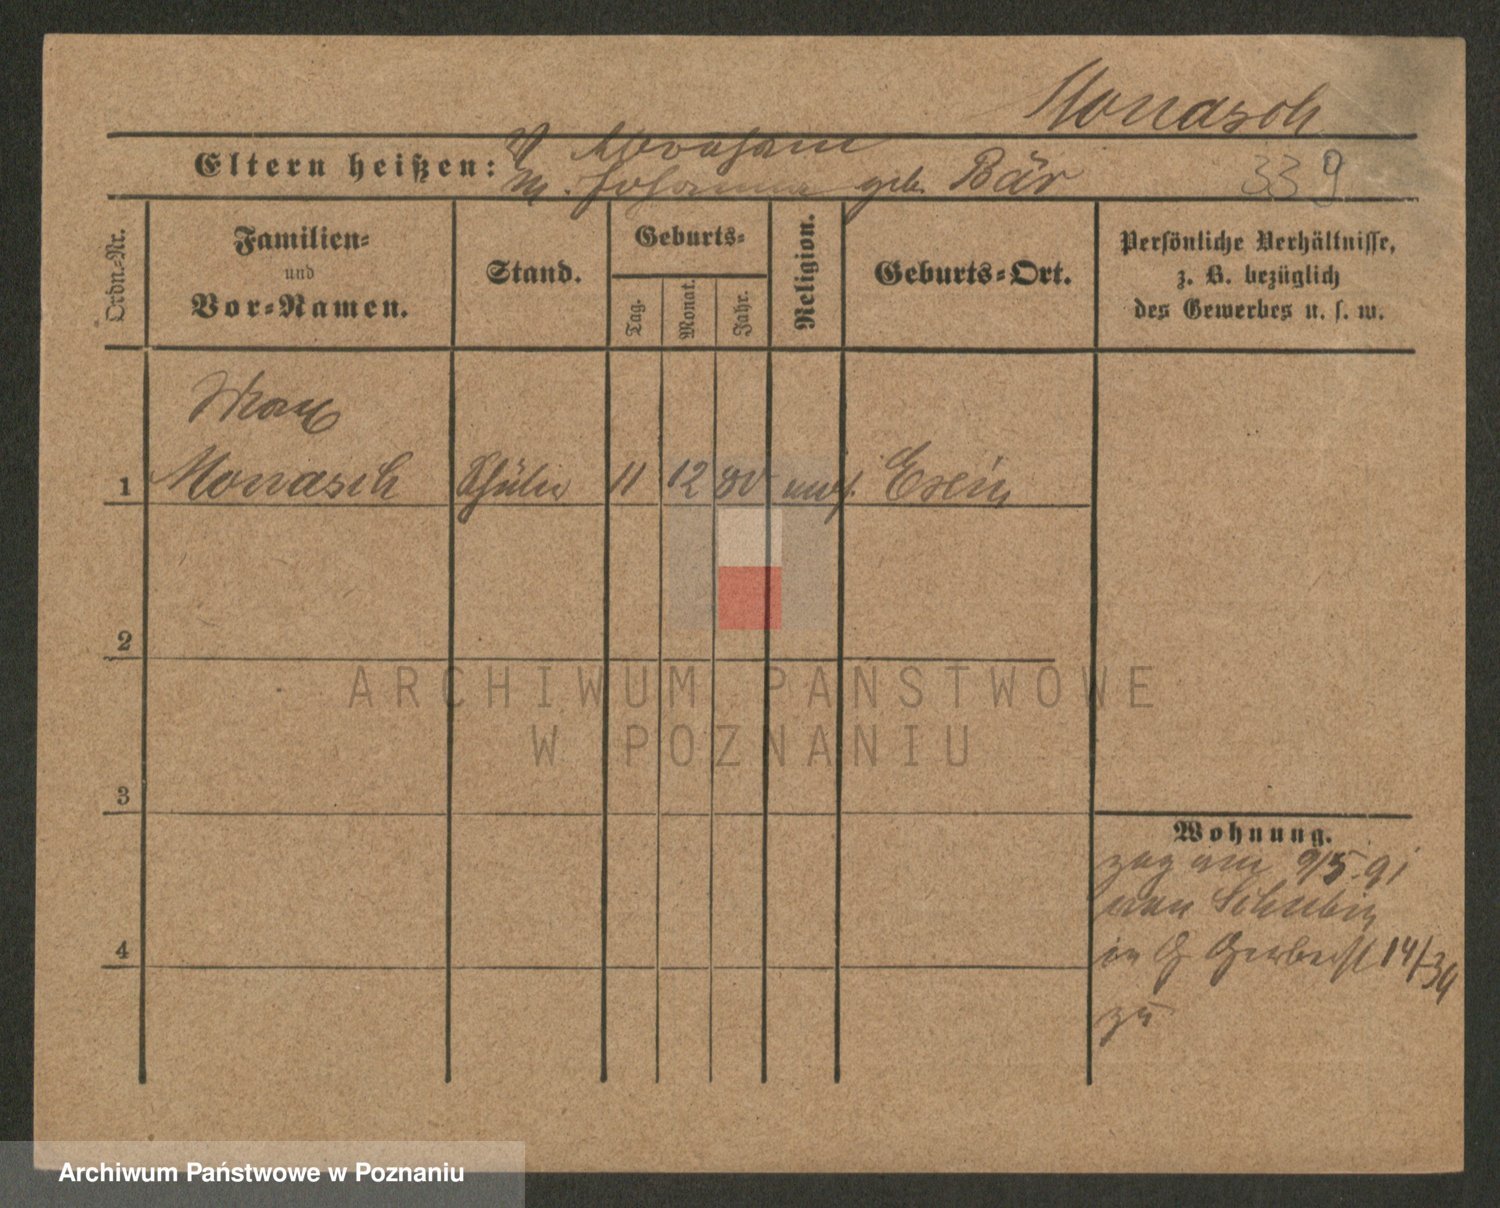 Monasch
V Abraham
Eltern heißen:
M. Johanna geb. Bär
339
Ordn.-Nr.
Familien-
und
Vor-Namen.
Stand.
Geburts-
Tag.
Monat.
Jahr.
Religion.
Geburts-Ort.
Persönliche Verhältnisse,
z. B. bezüglich
des Gewerbes u. ſ. w.
Max
1 Monasch Schüler 11 12 80 mos. Exin
2
ARCHIWUM PAŃSTWOWE
W POZNANIU
3
Wohnung.
zog am 9/5.91
von Schubin
4
in G Gerberst 14/
zu
Archiwum Państwowe w Poznaniu